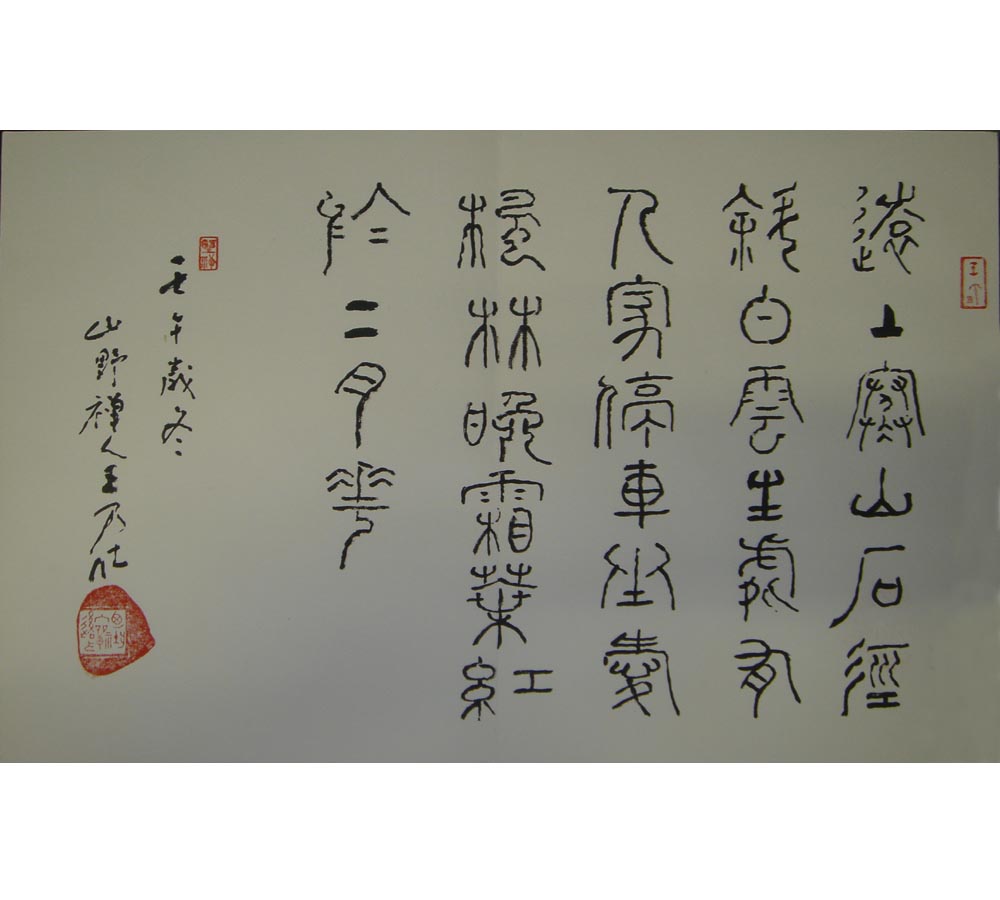 遠上寒山石徑
斜白雲生處有
人家停車坐愛
楓林晚霜葉紅
於二月華
壬午歲冬
山野禪人王乃壮